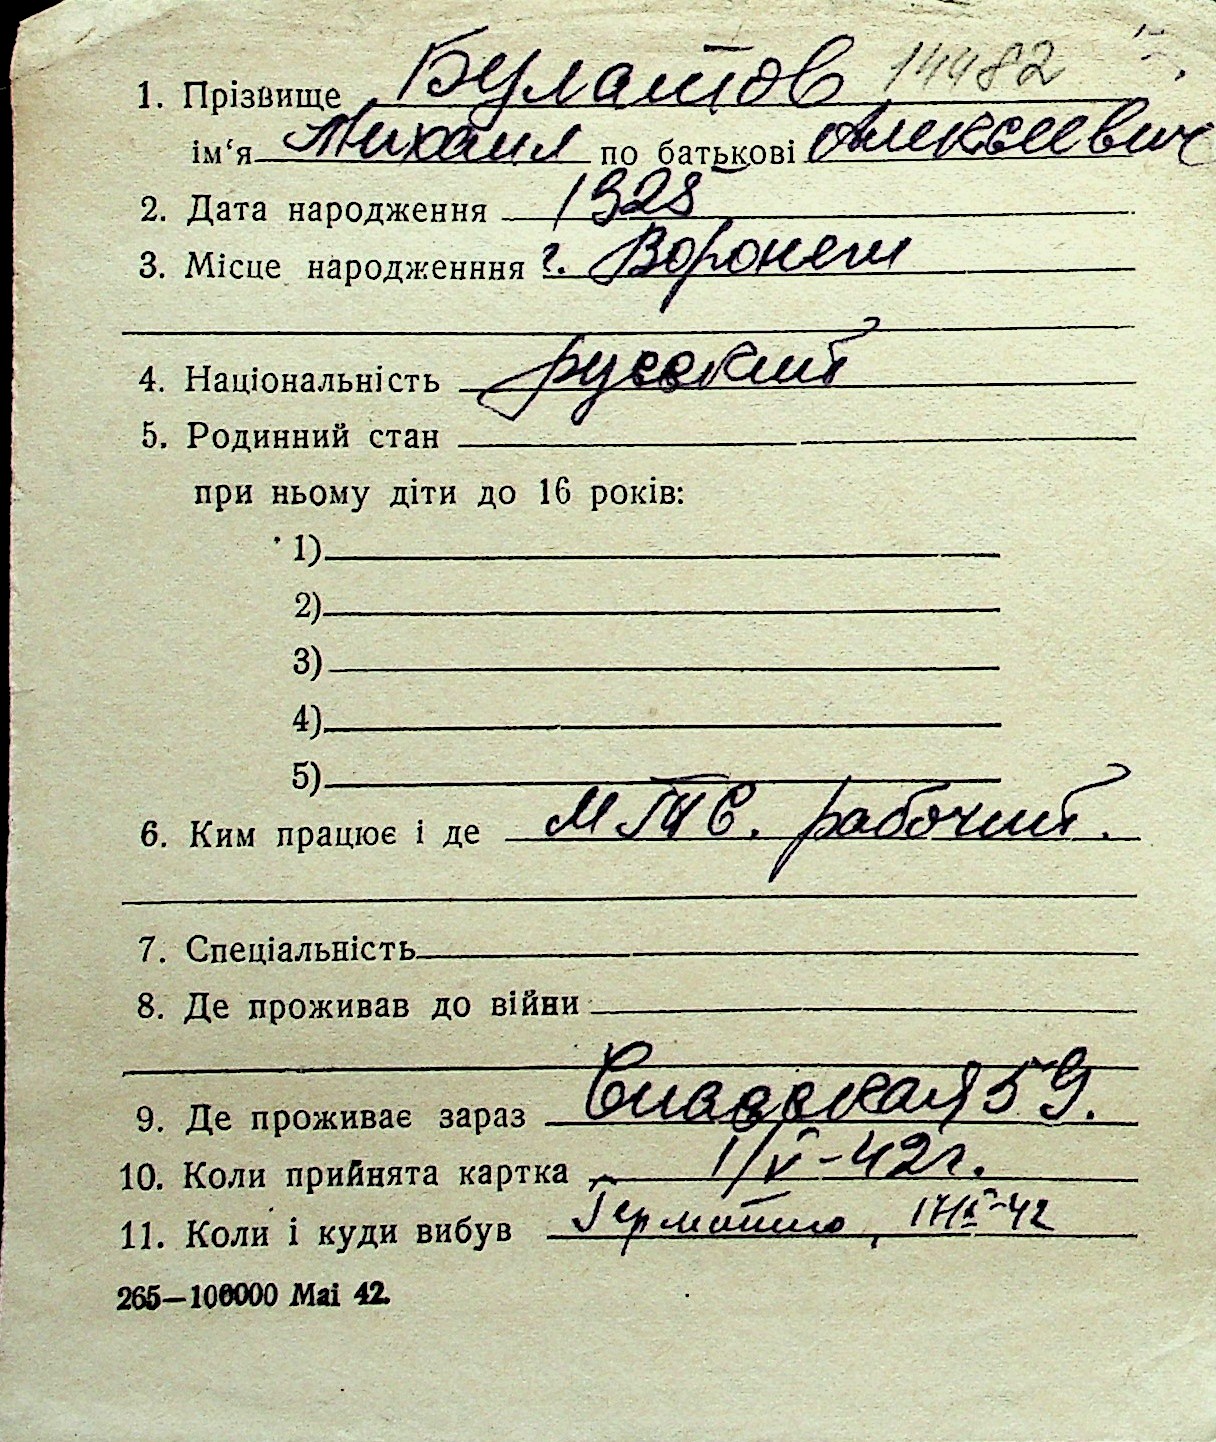 1. Прізвище Булатов 14482
ім'я Михаил по батькові Алексеевич
2. Дата народження 1925
3. Місце народженння г. Воронеж
4. Національність русский
5. Родинний стан
при ньому діти до 16 років:
1)
2)
3)
4)
5)
6. Ким працює і де МТС. рабочий.
7. Спеціальність
8. Де проживав до війни
9. Де проживає зараз Спасская 59.
10. Коли прийнята картка 1/V-42г.
11. Коли і куди вибув Германию,
265—100000 Mai 42.